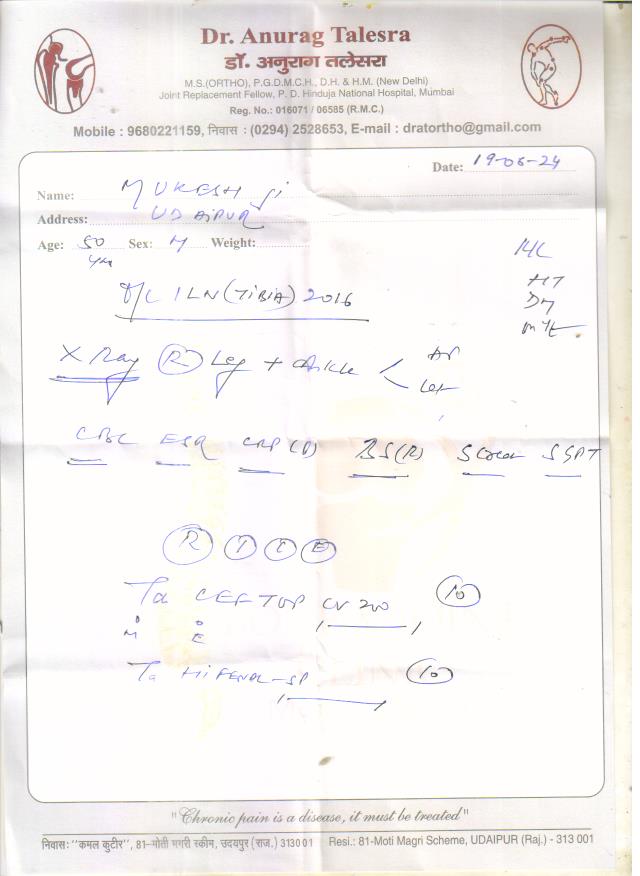 Dr. Anurag Talesra
डॉ. अनुराग तलेसरा
M.S.(ORTHO), P.G.D.M.C.H., D.H. & H.M. (New Delhi)
Joint Replacement Fellow, P. D. Hinduja National Hospital, Mumbai
Reg. No.: 016071 / 06585 (R.M.C.)
Mobile : 9680221159, निवास : (0294) 2528653, E-mail : dratortho@gmail.com
Date: 19-06-24
Name: MUKESH Ji
Address: UDAIPUR
Age: 50 yrs Sex: M Weight:
HT
DM
ILN (TIBIA) 2016
X Ray R Leg + Ankle < AP
Lat
CBC ESR CRP BS(R) SGPT
R I C E
Ta CEFTOP CV 200 10
M E
Ta HIFENAC-SP 10
"Chronic pain is a disease, it must be treated"
निवास: "कमल कुटीर", 81-मोती मगरी स्कीम, उदयपुर (राज.) 313001 Resi.: 81-Moti Magri Scheme, UDAIPUR (Raj.) - 313 001